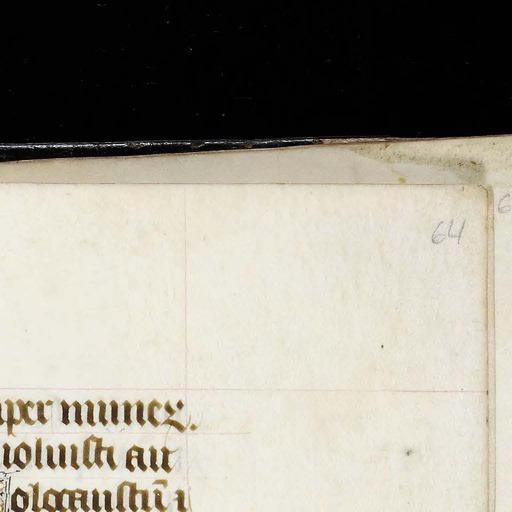 64
uper numeꝝ.
noluisti aur
olocaustū